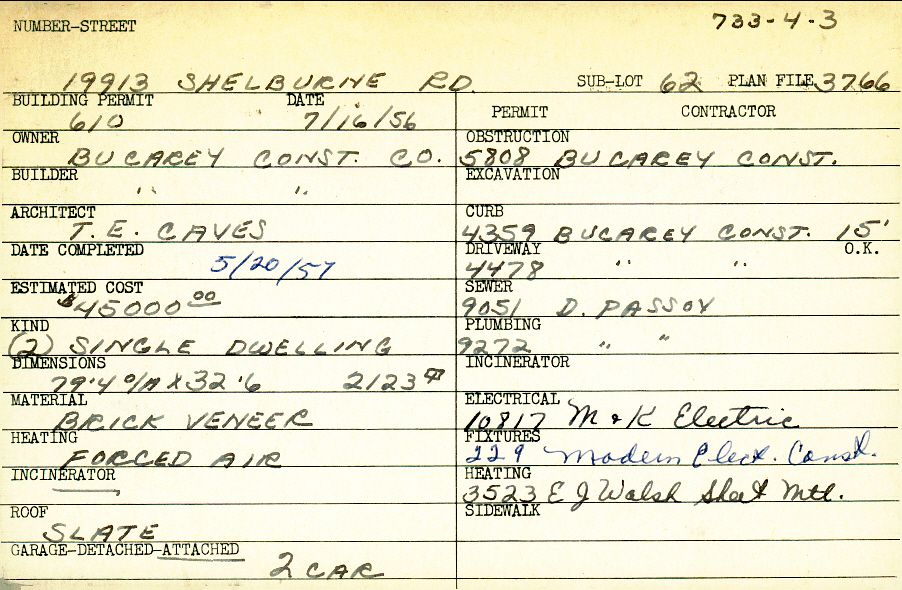 733-4-3
NUMBER-STREET
19913 SHELBURNE RD. SUB-LOT 62 PLAN FILE 3766
BUILDING PERMIT DATE
610 7/16/56
OWNER
BUCAREY CONST. CO.
BUILDER
" "
ARCHITECT
T. E. CAVES
DATE COMPLETED
5/20/57
ESTIMATED COST
$45000 00
KIND
(2) SINGLE DWELLING
DIMENSIONS
79'4 O/A X 32'6 2123
MATERIAL
BRICK VENEER
HEATING
FORCED AIR
INCINERATOR
ROOF
SLATE
GARAGE-DETACHED-ATTACHED
2 CAR
PERMIT CONTRACTOR
OBSTRUCTION
5808 BUCAREY CONST.
EXCAVATION
CURB
4359 BUCAREY CONST. 15'
DRIVEWAY O.K.
4478 " "
SEWER
9051 D. PASSOV
PLUMBING
9272 " "
INCINERATOR
ELECTRICAL
10817 M & K Electric
FIXTURES
229 Modern Elect. Const.
HEATING
3523 E J Walsh Sheet Mtl.
SIDEWALK